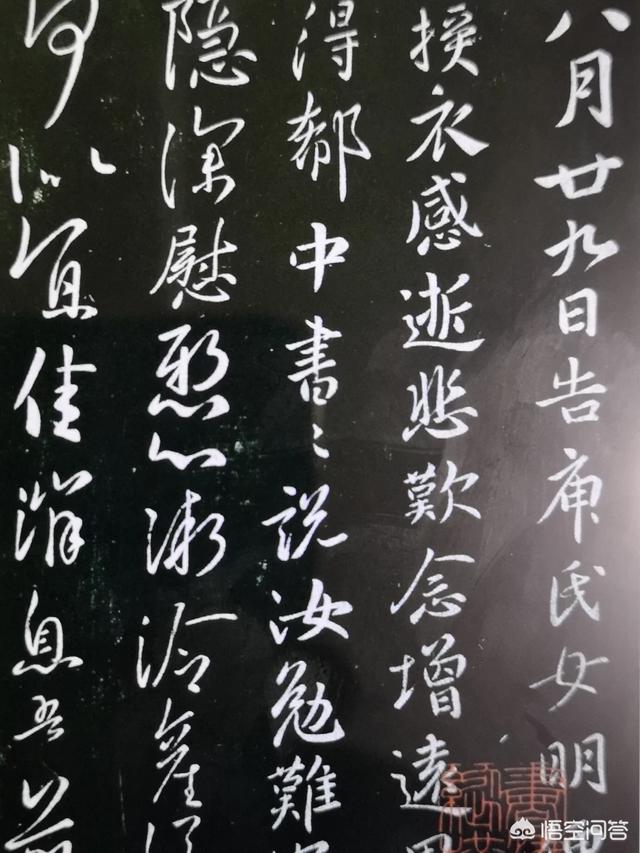 八月廿九日告庾氏女明
授衣感逝悲歎念增遠
得郗中書々說汝勉難
隱深慰懸心漸冷產
何以宜佳消息吾
悟空问答